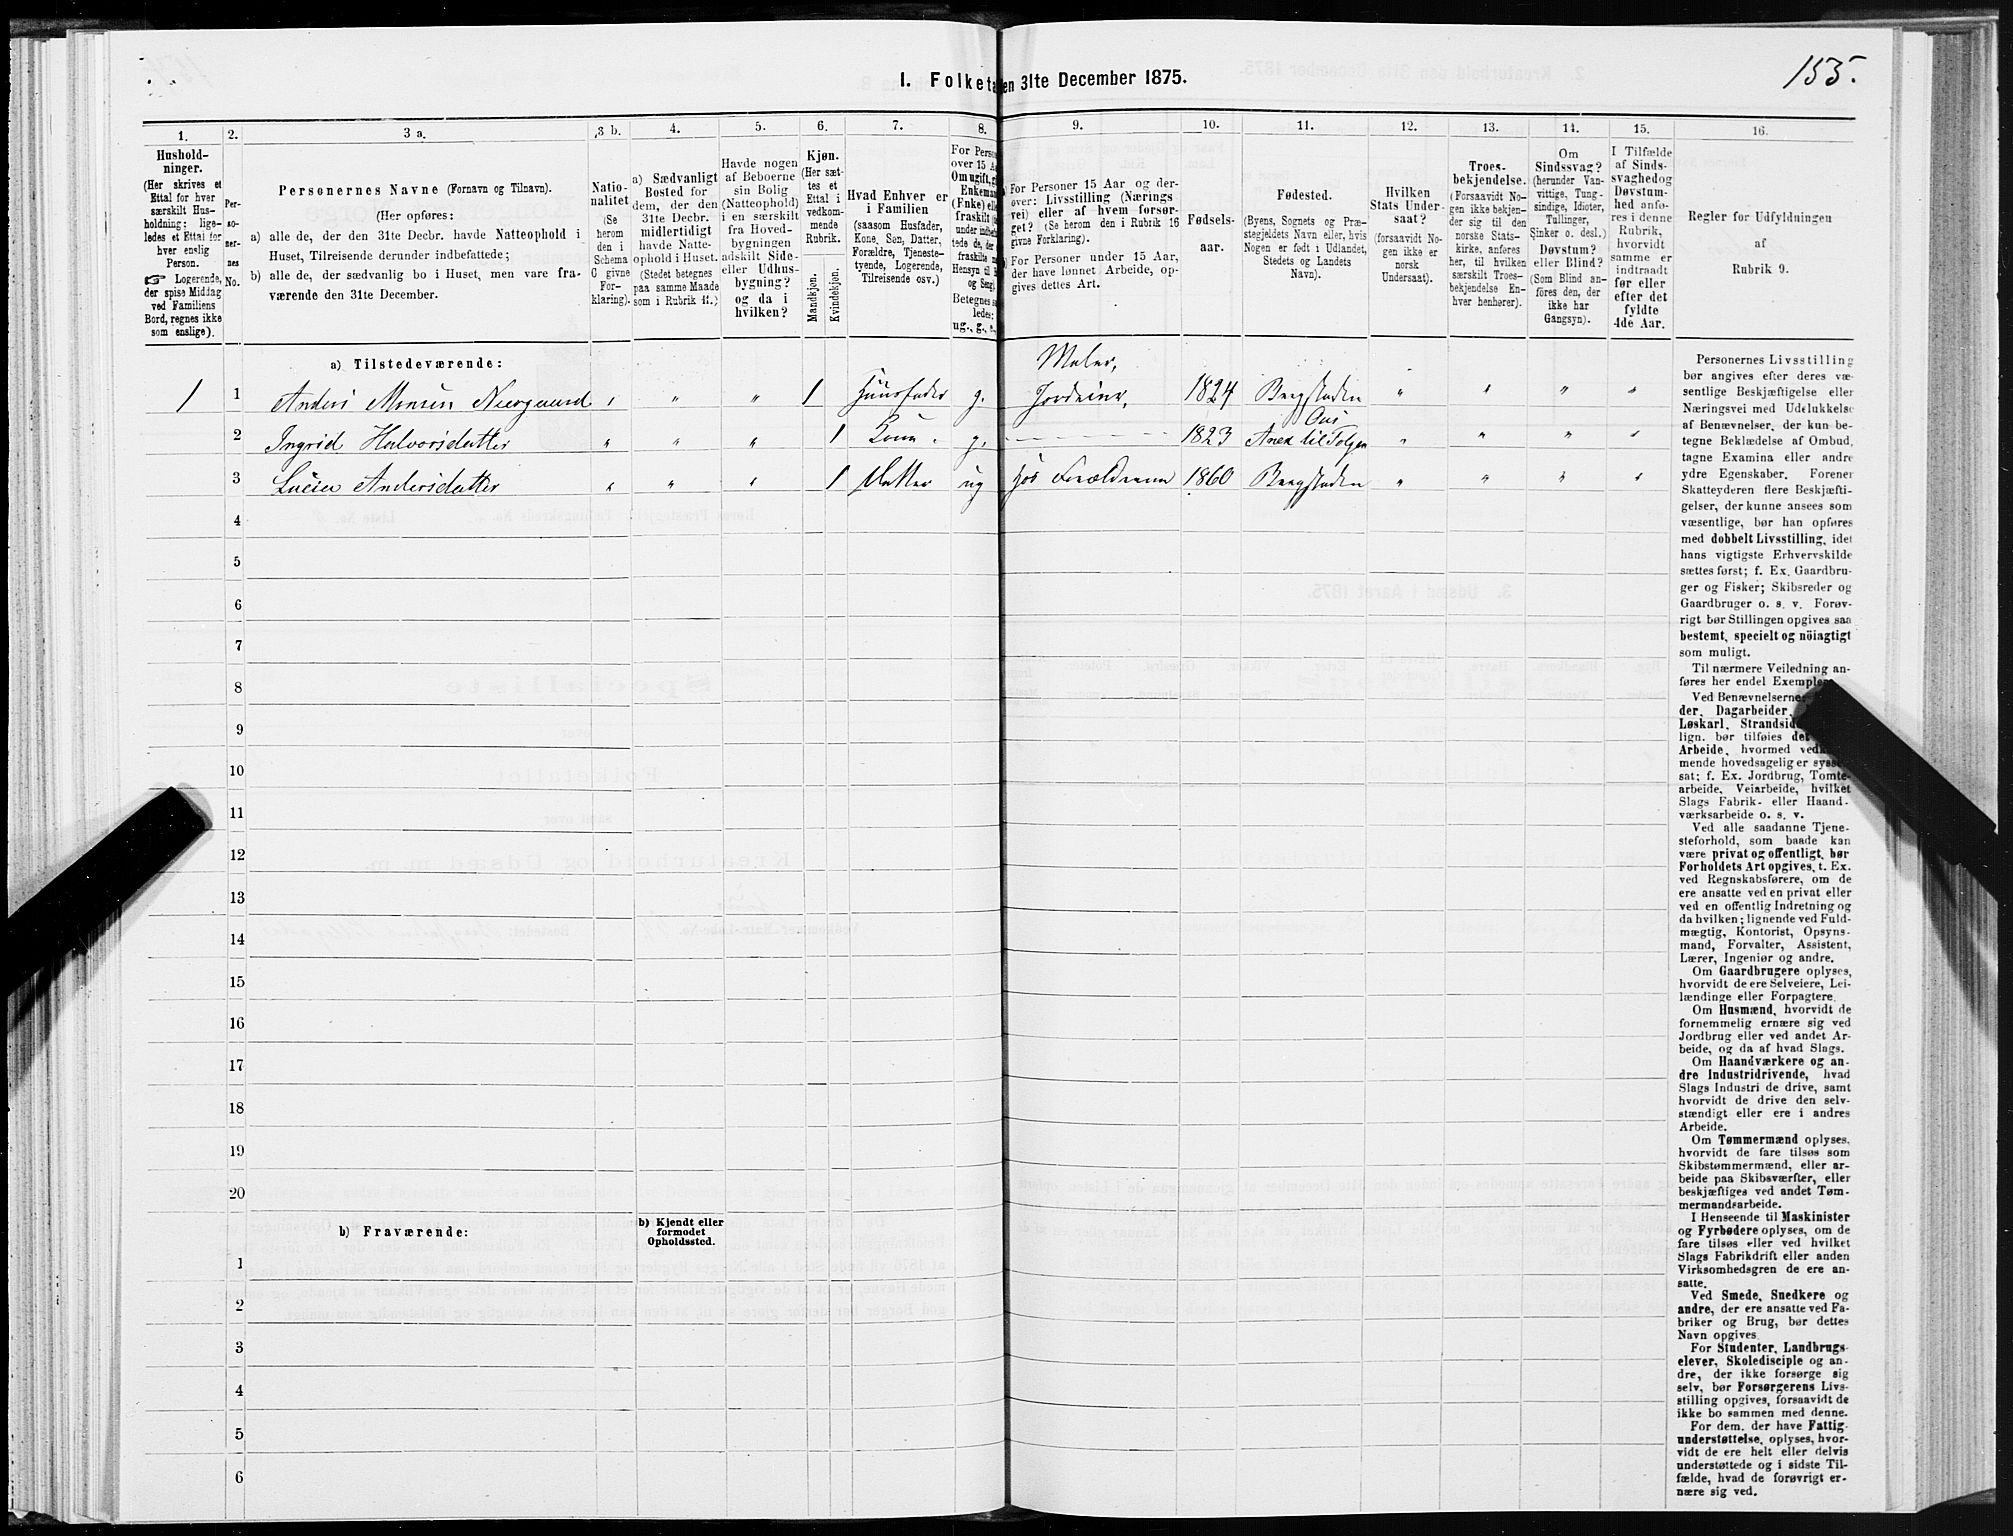 155.
I. Folketa en 31te December 1875.
1. 2. 3 a. 3 b. 4. 5. 6. 7. 8. 9. 10. 11. 12. 13. 14. 15. 16.
Hushold-
ninger.
(Her skrives et
Ettal for hver
særskilt Hus-
holdning; lige-
ledes et Ettal for
hver enslig
Person.
☞ Logerende,
der spise Middag
ved Familiens
Bord, regnes ikke
som enslige).
Per-
so-
ner-
nes
No.
Personernes Navne (Fornavn og Tilnavn).
(Her opføres:
a) alle de, der den 31te Decbr. havde Natteophold i
Huset, Tilreisende derunder indbefattede;
b) alle de, der sædvanlig bo i Huset, men vare fra-
værende den 31te December.
Natio-
nalitet
(Se
herom
den i
Schema
C givne
For-
klaring).
a) Sædvanligt
Bosted for
dem, der den
31te Decbr.
midlertidigt
havde Natte-
ophold i Huset.
(Stedet betegnes
paa samme Maade
som i Rubrik 11.)
Havde nogen
af Beboerne
sin Bolig
(Natteophold)
i en særskilt
fra Hoved-
bygningen
adskilt Side-
eller Udhus-
bygning?
og da i
hvilken?
Kjøn.
(Her sæt-
tes et
Ettal i
vedkom-
mende
Rubrik.
Mandkjøn.
Kvindekjøn.
Hvad Enhver er
i Familien
(saasom Husfader,
Kone, Søn, Datter,
Forældre, Tjeneste-
tyende, Logerende,
Tilreisende osv.)
For Perso
over 15 A
Om ugift, g
Enkeman
(Enke) ell
fraskilt
under indbef
tede de, der
fraskilte
Hensyn til
og Seng).
Betegnes s
ledes:
ug., g., e.,
For Personer 15 Aar og der-
over: Livsstilling (Nærings
vei) eller af hvem forsør-
get? (Se herom den i Rubrik 16
givne Forklaring).
For Personer under 15 Aar,
der have lønnet Arbeide, op-
gives dettes Art.
Fødsels-
aar.
Fødested.
(Byens, Sognets og Præ-
stegjeldets Navn eller, hvis
Nogen er født i Udlandet,
Stedets og Landets
Navn).
Hvilken
Stats Under-
saat?
(forsaavidt No-
gen ikke er
norsk
Undersaat).
Troes-
bekjendelse.
(Forsaavidt No-
gen ikke bekjen-
der sig til den
norske Stats-
kirke, anføres
her, til hvilken
særskilt Troes-
bekjendelse En-
hver henhører).
Om
Sindssvag?
(herunder Van-
vittige, Tung-
sindige, Idioter,
Tullinger,
Sinker o. desl.)
Døvstum?
eller Blind?
(Som Blind an-
føres den, der
ikke har
Gangsyn).
I Tilfælde
af Sinds-
svaghed og
Døvstum-
hed anfø-
res i denne
Rubrik,
hvorvidt
samme er
indtraadt
før eller
efter det
fyldte
4de Aar.
Regler for Udfyldningen
af
Rubrik 9.
a) Tilstedeværende:
Maler,
1 1 Anders Monsen Neergaard 1 Huusfader g. Jordeier, 1824 Bergstaden
Oús
2 Ingrid Halvorsdatter 1 Kone. g. 1823 Anex til Tolgen
3 Lucie Andersdatter 1 Datter ug hos Forældrene 1860 Bergstaden
4
5
6
7
8
9
10
11
12
13
14
15
16
17
18
19
20
b) Fraværende:
b) Kjendt eller
formodet
Opholdssted.
1
2
3
4
5
6
Personernes Livsstilling
bør angives efter deres væ-
sentlige Beskjæftigelse eller
Næringsvei med Udelukkelse
af Benævnelser, der kun be-
tegne Beklædelse af Ombud,
tagne Examina eller andre
ydre Egenskaber. Forener
Skatteyderen flere Beskjæfti-
gelser, der kunne ansees som
væsentlige, bør han opføres
med dobbelt Livsstilling, idet
hans vigtigste Erhvervskilde
sættes først; f. Ex. Gaardbru-
ger og Fisker; Skibsreder og
Gaardbruger o. s. v. Forøv-
rigt bør Stillingen opgives saa
bestemt, specielt og nöiagtigt
som muligt.
Til nærmere Veiledning an-
føres her endel Exempler
Ved Benævnelserne:
der, Dagarbeider,
Løskarl, Strandsid
lign. bør tilføies det
Arbeide, hvormed ved
mende hovedsagelig er sysse
sat; f. Ex. Jordbrug, Tomte-
arbeide, Veiarbeide, hvilket
Slags Fabrik- eller Haand-
værksarbeide o. s. v.
Ved alle saadanne Tjene-
steforhold, som baade kan
være privat og offentligt, bør
Forholdets Art opgives, t. Ex.
ved Regnskabsførere, om de
ere ansatte ved en privat eller
ved en offentlig Indretning og
da hvilken; lignende ved Fuld-
mægtig, Kontorist, Opsyns-
mand, Forvalter, Assistent,
Lærer, Ingeniør og andre.
Om Gaardbrugere oplyses,
hvorvidt de ere Selveiere, Lei-
lændinge eller Forpagtere.
Om Husmænd, hvorvidt de
fornemmelig ernære sig ved
Jordbrug eller ved andet Ar-
beide, og da af hvad Slags.
Om Haandværkere og an-
dre Industridrivende, hvad
Slags Industri de drive, samt
hvorvidt de drive den selv-
stændigt eller ere i andres
Arbeide.
Om Tømmermænd oplyses,
hvorvidt de fare tilsøs som
Skibstømmermænd, eller ar-
beide paa Skibsværfter, eller
beskjæftiges ved andet Tøm-
mermandsarbeide.
I Henseende til Maskinister
og Fyrbødere oplyses, om de
fare tilsøs eller ved hvilket
Slags Fabrikdrift eller anden
Virksomhedsgren de ere an-
satte.
Ved Smede, Snedkere og
andre, der ere ansatte ved Fa-
briker og Brug, bør dettes
Navn opgives.
For Studenter, Landbrugs-
elever, Skoledisciple og an-
dre, der ikke forsørge sig
selv, bør Forsørgerens Livs-
stilling opgives, forsaavidt de
ikke bo sammen med denne.
For dem, der have Fattig-
understøttelse, oplyses, hvor-
vidt de ere helt eller delvis
understøttede og i sidste Til-
fælde, hvad de forøvrigt er-
nære sig ved.